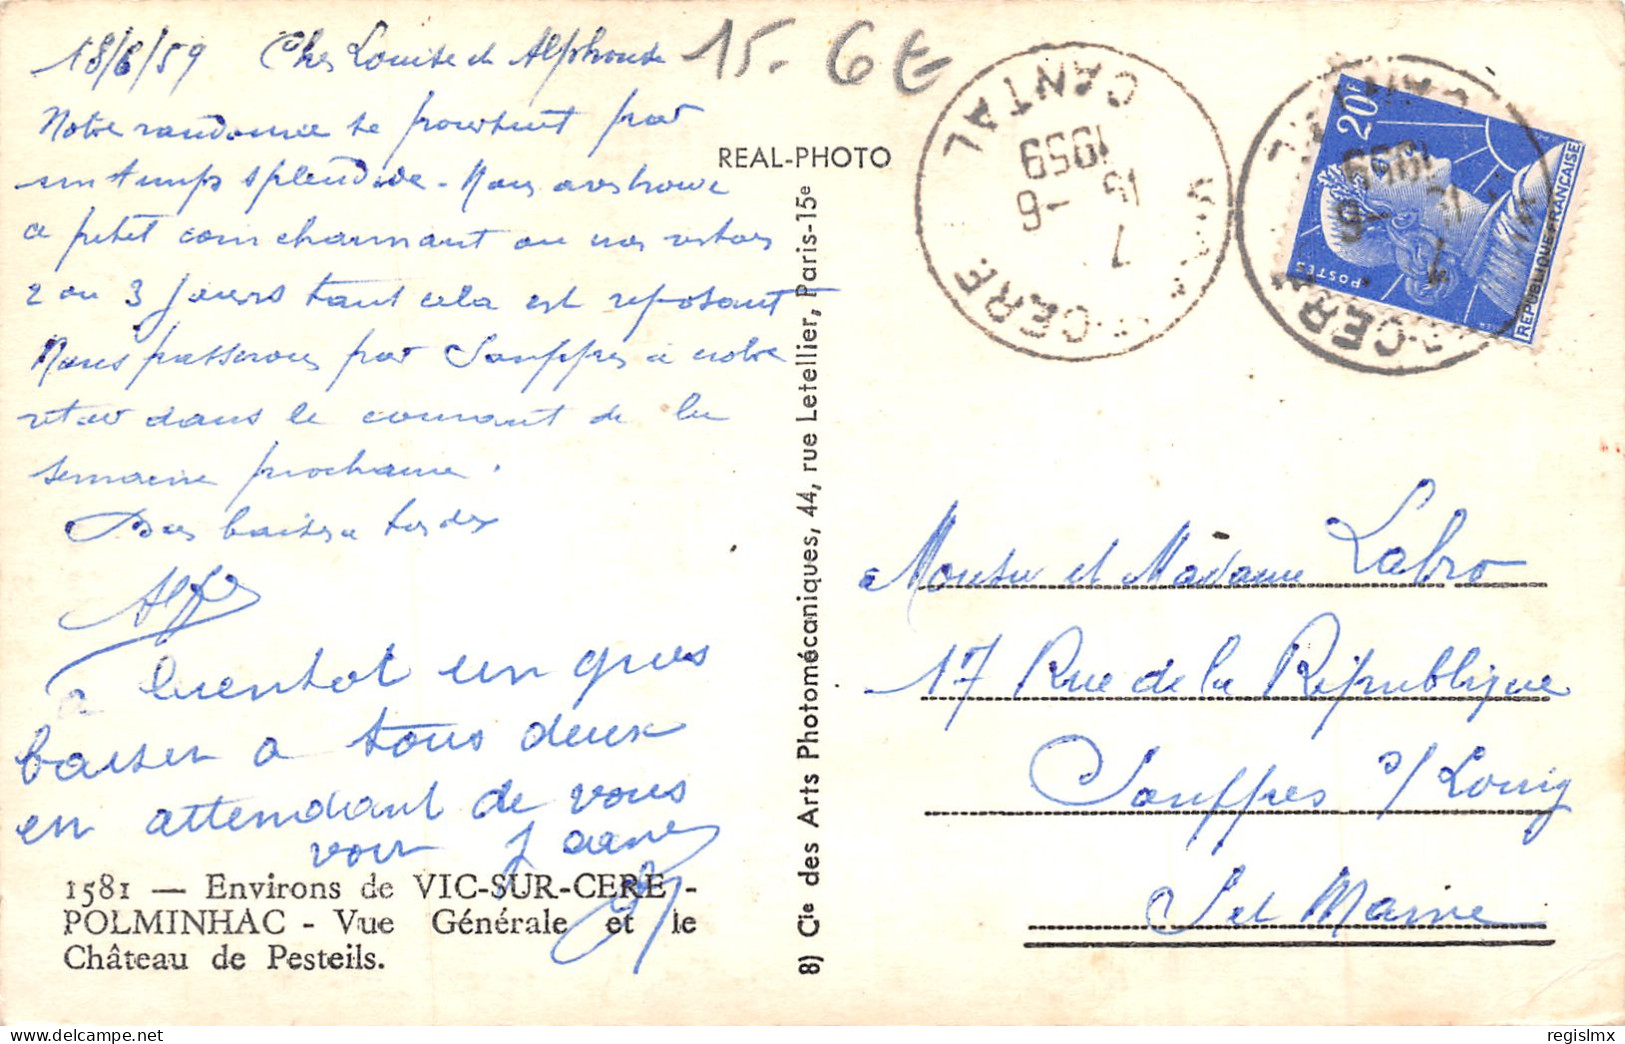 18/6/59 Chers Louise et Alphonse
Notre randonnée se poursuit par
un temps splendide - Nous avons trouvé
a petit coin charmant ou nous restons
2 ou 3 jours tant cela est reposant
Nous passerons par Souppes à notre
retour dans le courant de la
semaine prochaine.
Bons baisers à tous deux
a bientot un gros
baiser a tous deux
en attendant de vous
voir
1581 — Environs de VIC-SUR-CERE -
POLMINHAC - Vue Générale et le
Château de Pesteils.
15 - 6€
REAL-PHOTO
8) Cie des Arts Photomécaniques, 44, rue Letellier, Paris-15e
CANTAL
15 - 6
1959
-CERE
20F
POSTES
REPUBLIQUE FRANÇAISE
Monsieur et Madame Labro
17 Rue de la République
Souppes s/ Loing
S et Marne
regislmx